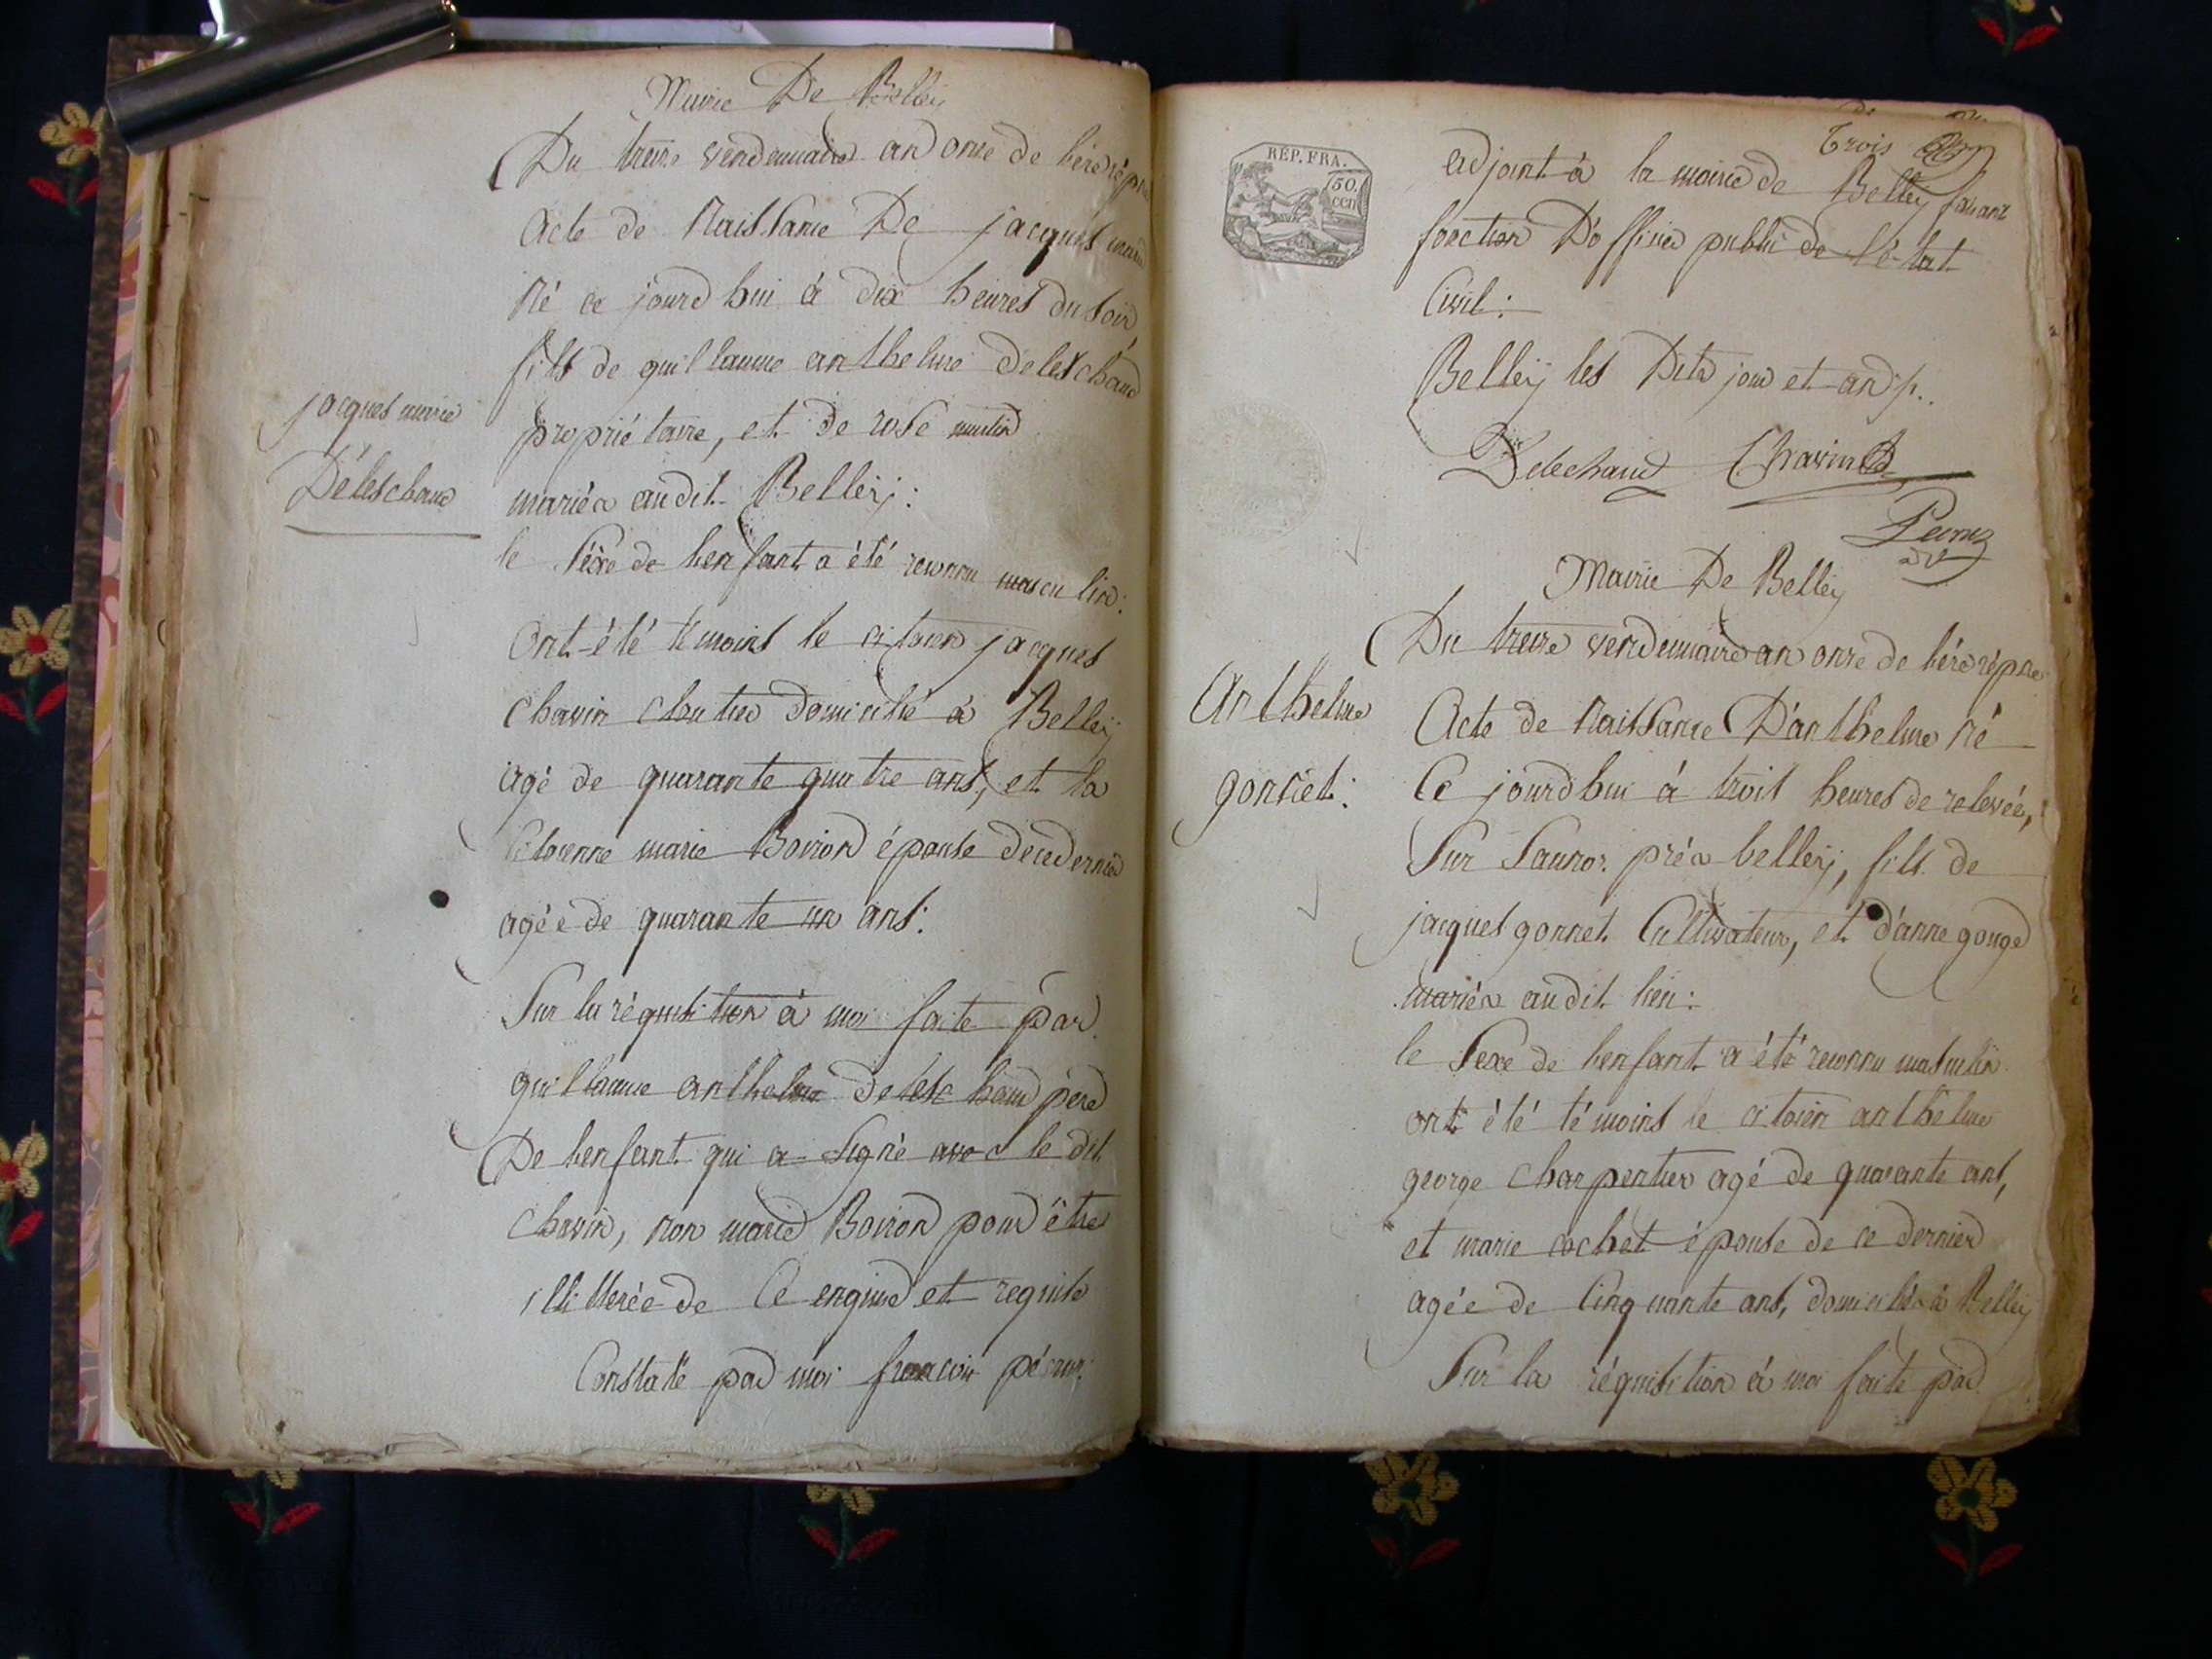 Mairie De Belleÿ
Du treize vendemiaire an onze de l'ère répne
Acte de Naissance De jacques marie
Né ce jourd'hui à dix heures du soir
fils de guillaume anthelme deleschaud
jacques marie
Déleschaud
propriétaire, et de rose
mariés audit Belleÿ:
le Séxe de l'enfant a été reconnu masculin:
Ont été témoins le citoien jacques
Chavin domicilié à Belleÿ
agé de quarante quatre ans, et la
Citoienne marie Boiron épouse de ce dernier
agée de quarante un ans:
Sur la réquisition à moi faite par
guillaume anthelme deleschaud père
De l'enfant qui a Signé avec le dit
Chavin, non marie Boiron pour être
illitterée de Ce enquise et requise
Constaté par moi françois
Trois
REP. FRA.
50.
cen
adjoint à la mairie de Belleÿ faisant
fonction D'officier public de l'état
Civil:
Belleÿ les Dits jour et an
Delechaud Chavin
Mairie De Belleÿ
Du treize vendemiaire an onze de l'ère répne
Anthelme
gonnet:
Acte de Naissance D'anthelme né
Ce jourd'hui à trois heures de relevée,
Sur près belleÿ, fils de
jacques gonnet Cultivateur, et d'anne gouge
mariés audit lieu:
le Sexe de l'enfant a été reconnu masculin
ont été témoins le citoien anthelme
george charpentier agé de quarante ans,
et marie cochet épouse de ce dernier
agée de Cinquante ans, domiciliés à Belleÿ
Sur la réquisition à moi faite par